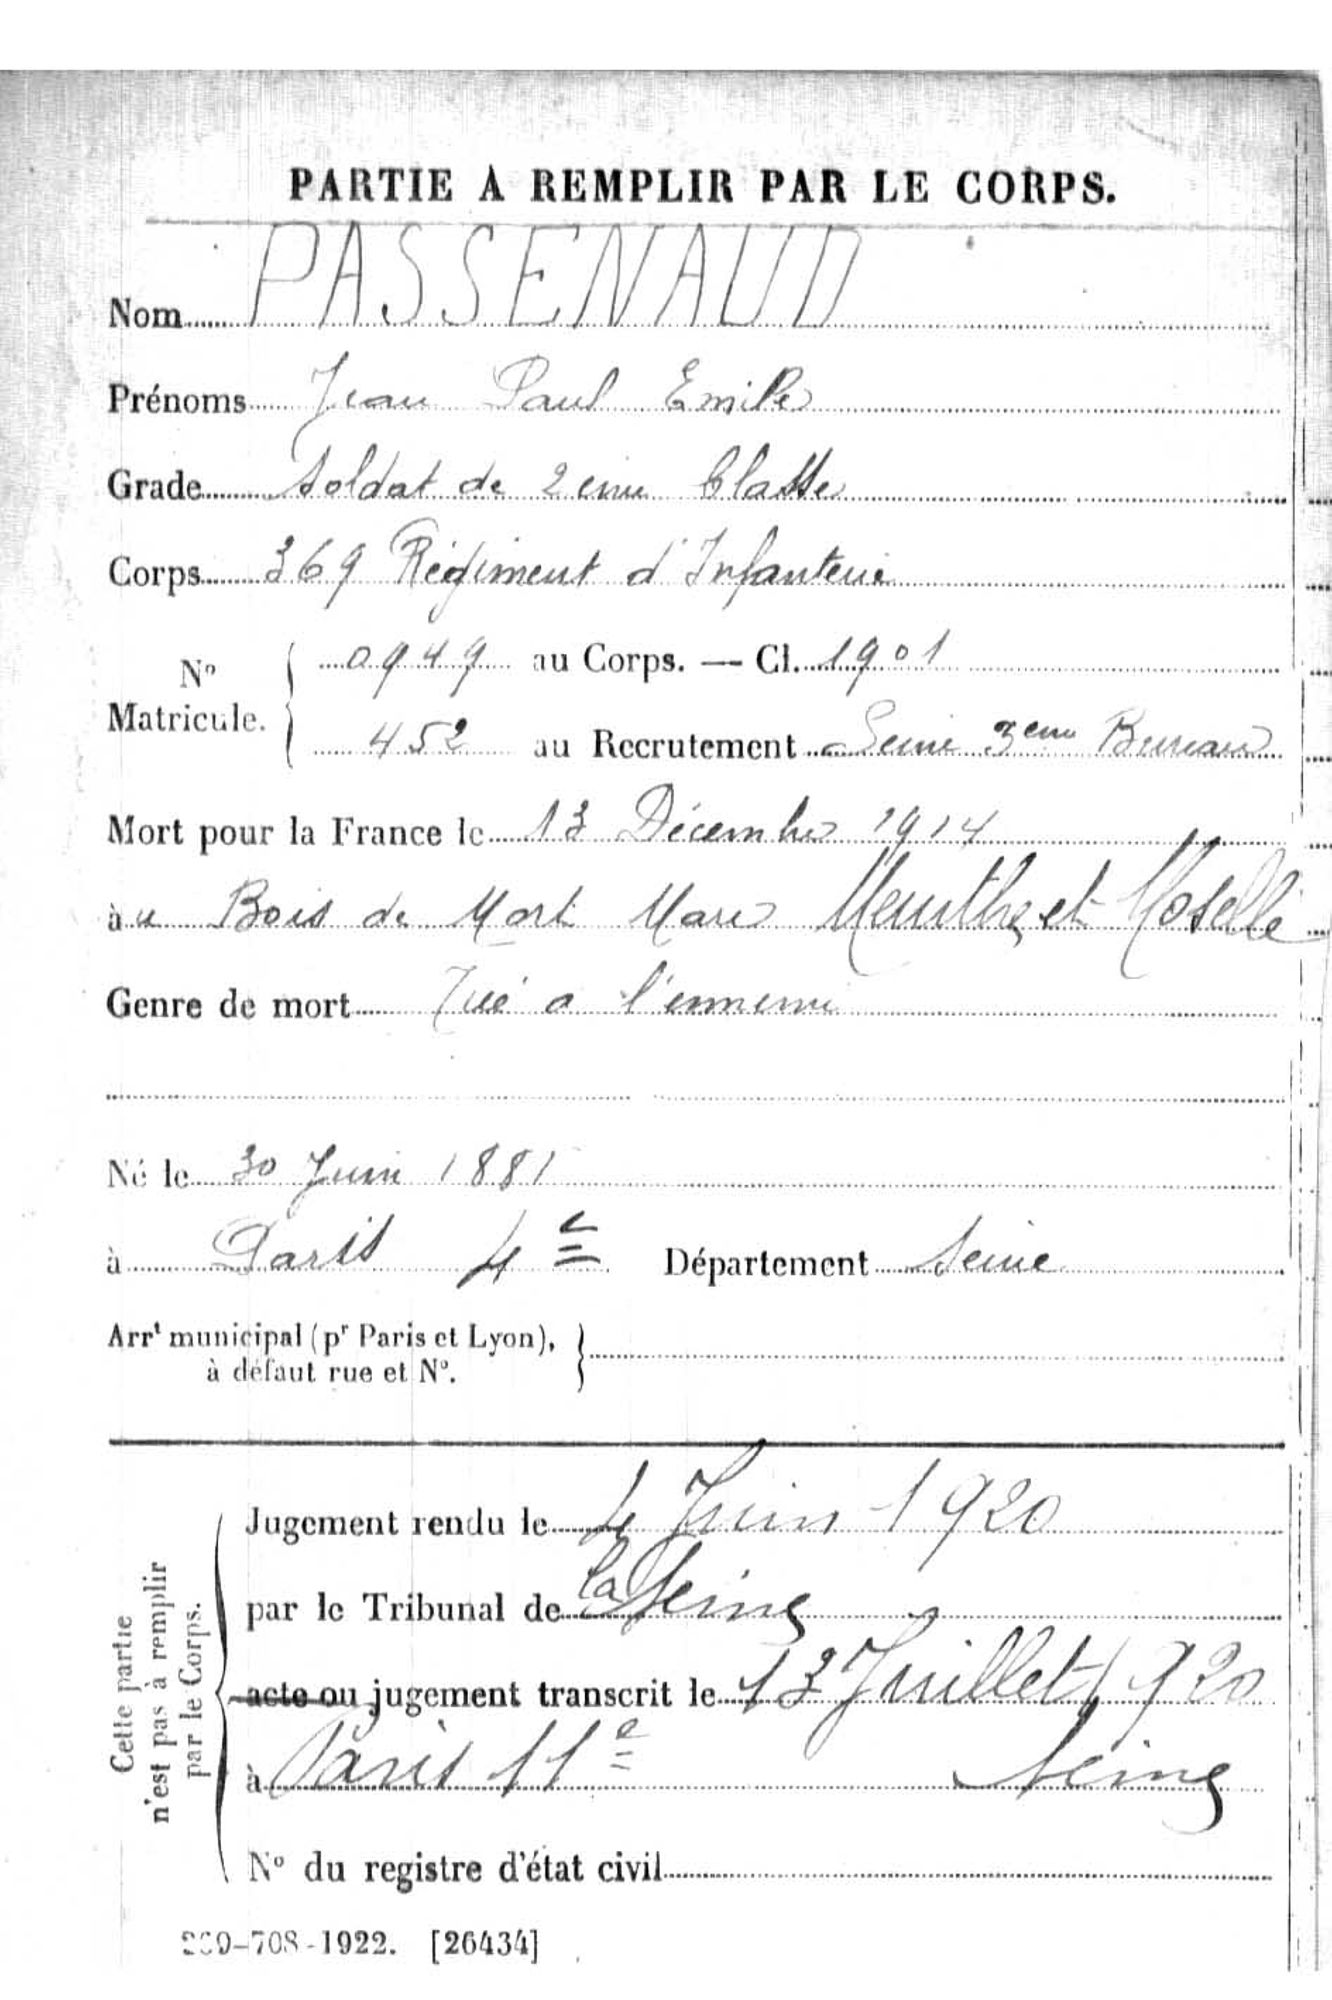 PARTIE A REMPLIR PAR LE CORPS.
Nom PASSENAUD
Prénoms Jean Paul Emile
Grade Soldat de 2eme Classe
Corps 369 Régiment d'Infanterie
No Matricule. { 0949 au Corps. — Cl. 1901
452 au Recrutement Seine 3eme Bureau
Mort pour la France le 13 Décembre 1914
àu Bois de Mort Mare Meurthe et Moselle
Genre de mort Tué a l'ennemi
Né le 30 Juin 1881
à Paris 4e Département Seine
Arrt municipal (pr Paris et Lyon),
à défaut rue et No. }
Cette partie
n'est pas à remplir
par le Corps.
Jugement rendu le 4 Juin 1920
par le Tribunal de la Seine
acte ou jugement transcrit le 13 Juillet 1920
à Paris 11e Seine
No du registre d'état civil
-708-1922. [26434]